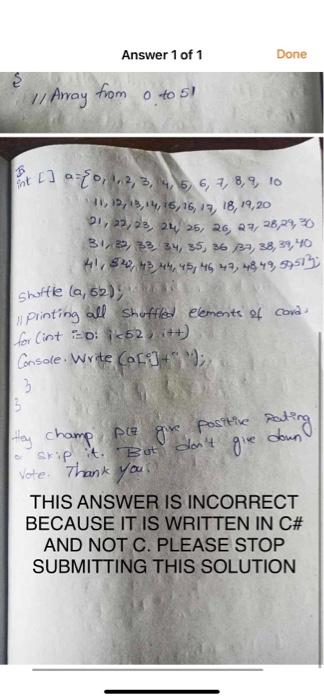 Answer 1 of 1
Done
{
// Array from 0 to 51
int [] a={0, 1, 2, 3, 4, 5, 6, 7, 8, 9, 10
11, 12, 13, 14, 15, 16, 17, 18, 19, 20
21, 22, 23, 24, 25, 26, 27, 28, 29, 30
31, 32, 33, 34, 35, 36, 37, 38, 39, 40
41, 43, 44, 45, 46, 47, 48, 49, 50, 51};
Shuffle (a, 52);
// printing all shuffled elements of card.
for (int i=0; i<52, i++)
Console. Write (a[i]+" ");
}
}
Hey champ, plz give positive Rating
o skip it. But don't give down
vote. Thank you.
THIS ANSWER IS INCORRECT
BECAUSE IT IS WRITTEN IN C#
AND NOT C. PLEASE STOP
SUBMITTING THIS SOLUTION